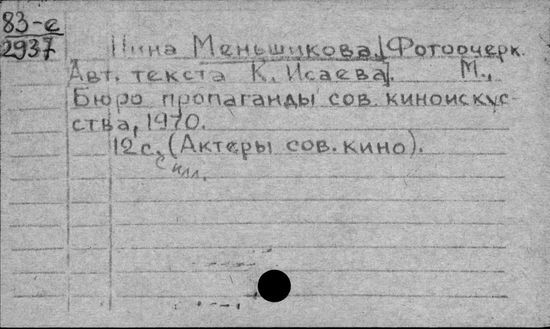 83-е
2937
Нина Меньшикова. [Фотоочерк.
Авт. текста К. Исаева]. М.,
Бюро пропаганды сов. киноискус-
ства, 1970.
12 с. (Актеры сов. кино).
с илл.